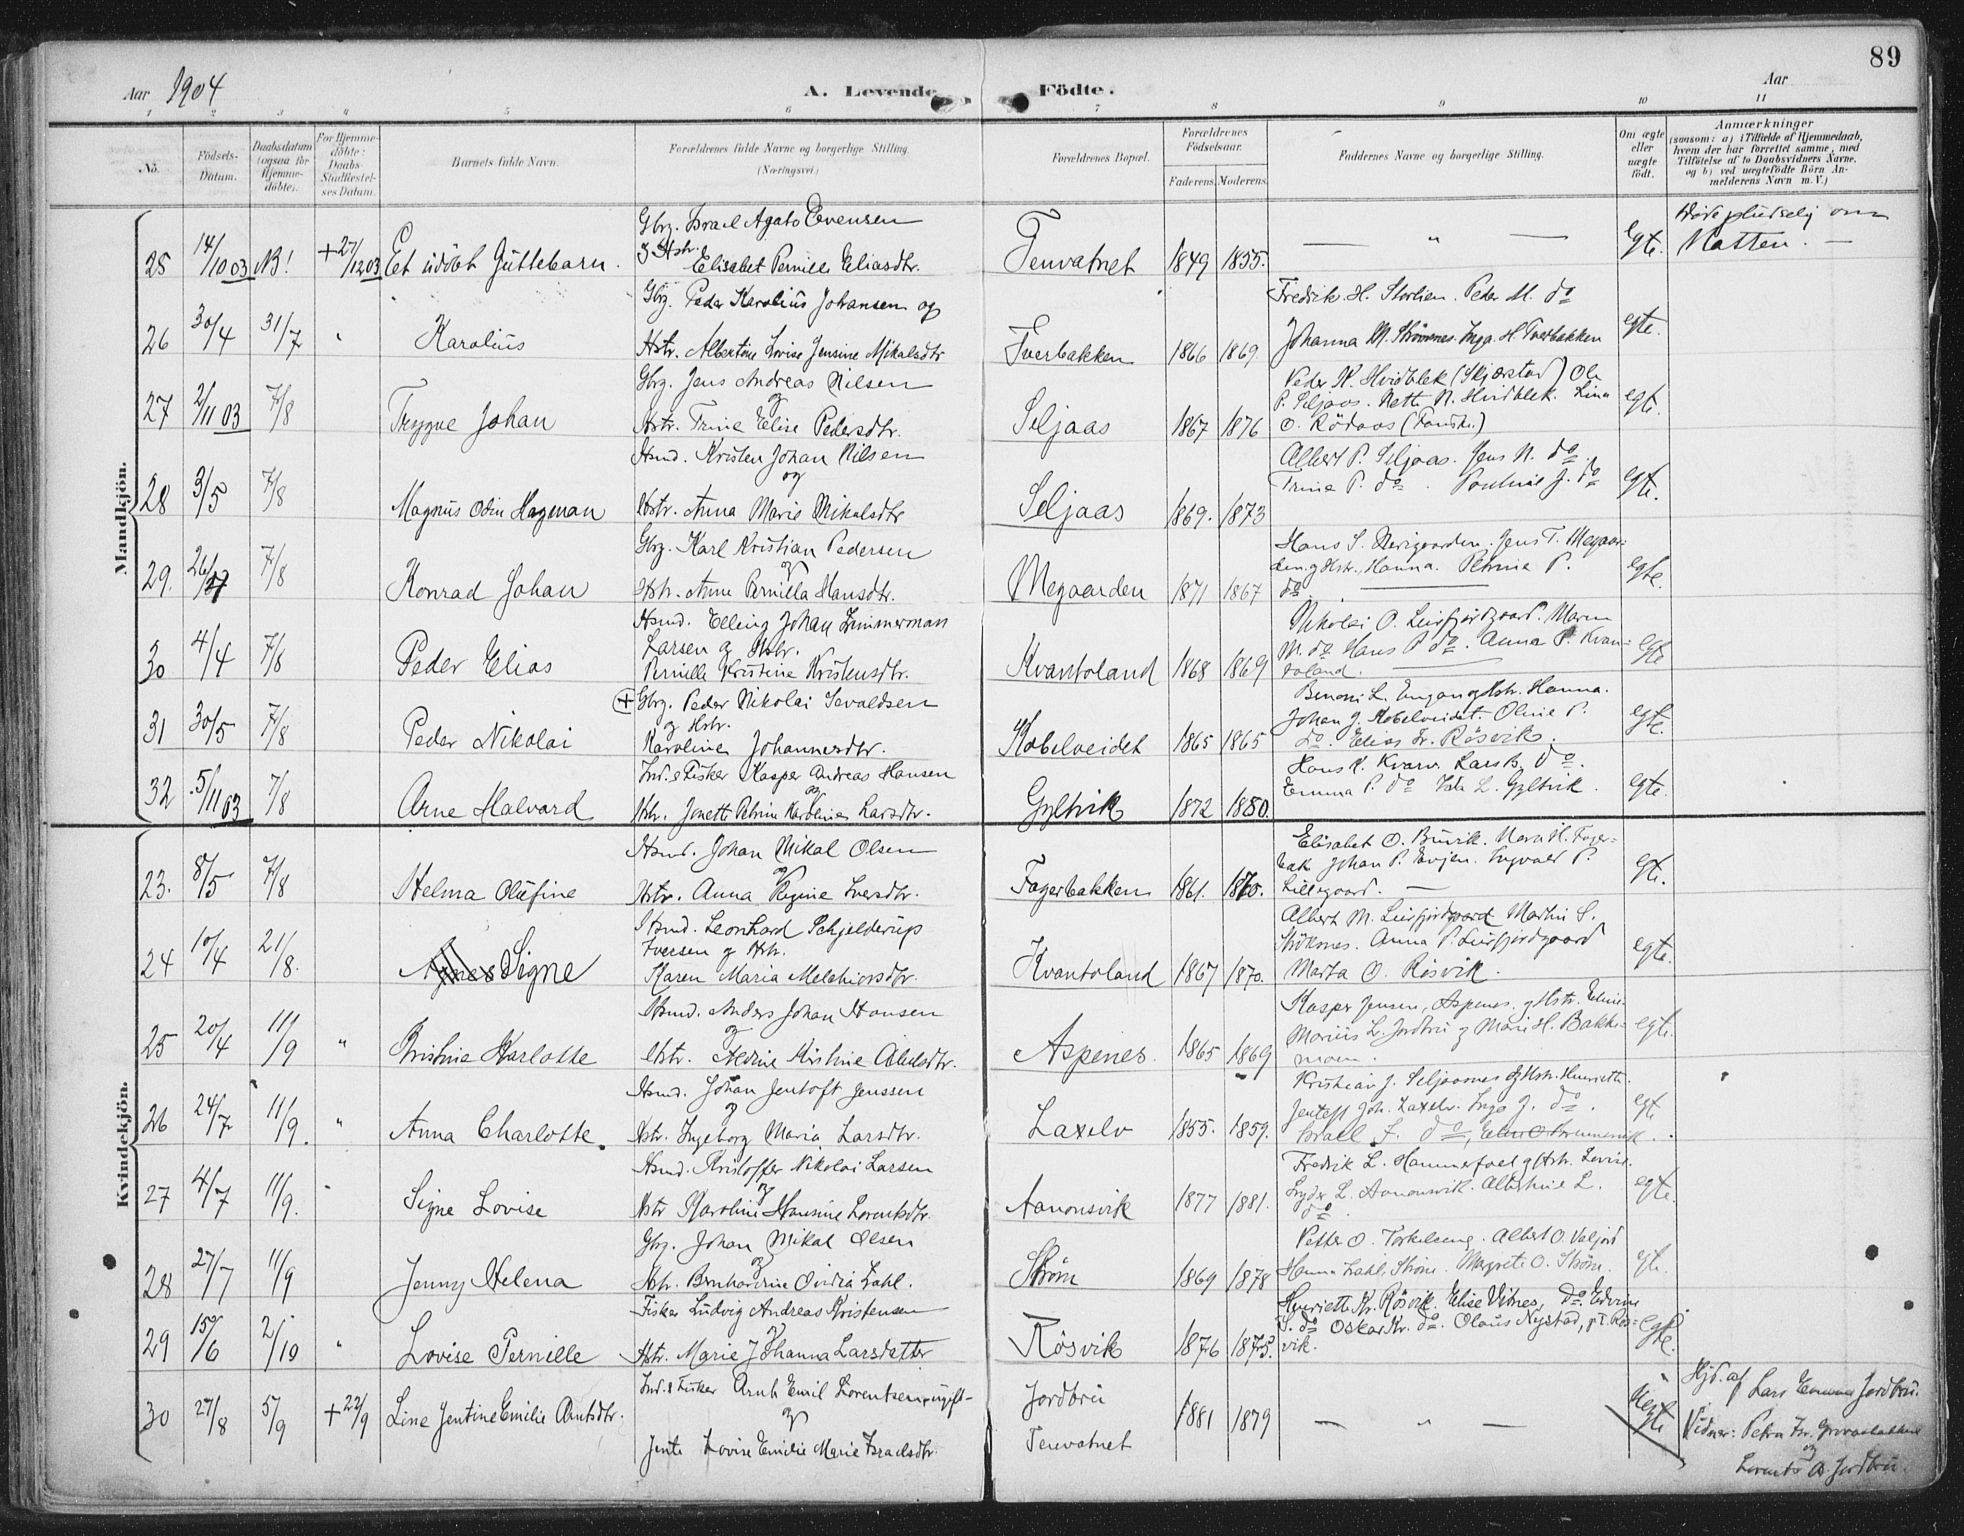 89
Aar 1904 A. Levende Födte. Aar
1 2 3 4 5 6 7 8 9 10 11
No.
Födsels-Datum.
Daabsdatum (ogsaa for Hjemmedöbte).
For Hjemmedöbte: Daabs-Stadfæstelses Datum.
Barnets fulde Navn.
Forældrenes fulde Navne og borgerlige Stilling. (Næringsvei.)
Forældrenes Bopæl.
Forældrenes Födselsaar.
Faderens. Moderens.
Faddernes Navne og borgerlige Stilling.
Om ægte eller uægte födt.
Anmærkninger
(saasom: a) i Tilfælde af Hjemmedaab, hvem der har forrettet samme, med Tilföielse af to Daabsvidners Navne, og b) ved uægtefödte Börn Anmelderens Navn m. V.)
Mandkjön.
25 14/10 03 NB! +27/12 03 Et udöbt Guttebarn. Gbrg. Israel Agato Evensen
g Hstr. Elisabet Pernille Eliasdtr. Tenvatnet 1849 1855. — " — egte. Döde pludselig om Natten. —
26 30/4 31/7 " Karolius Gbrg. Peder Karolius Johansen og
Hstr. Albertine Lovise Jensine Mikalsdtr Tverbakken 1866 1869. Fredrik H. Storlien. Peder M. do
Johanna M. Strömnes. Inga H. Tverbakken egte.
27 2/11 03 7/8 Trygve Johan Gbrg. Jens Andreas Nilsen
og
Hstr. Trine Elise Pedersdtr. Seljaas 1867 1876 Peder N. Hvidblek (Skjærstad) Ole
P. Seljaas. Nette N. Hvidblek. Lina
O. Rödaas (Fauske.) egte.
28 3/5 7/8 Magnus Odin Hagman Hmd. Kristen Johan Nilsen
og
Hstr. Anna Marie Mikalsdtr Seljaas 1869. 1873 Albert P. Seljaas. Jens N. do
Trine P. do. Pauline J. do egte.
29. 26/ 7/8 Konrad Johan Gbrg. Karl Kristian Pedersen
og
Hstr. Anne Pernilla Hansdtr. Megaarden 1871 1867 Hans S. Nerigaarden. Jens T. Megaarden. g Hstr. Hanna. Petrine P.
do. — egte.
30 4/4 7/8 Peder Elias Hmd. Elling Johan Zimmerman
Larsen og Hstr.
Pernille Kristine Kristensdtr. Kvantoland 1868 1869 Nikolai O. Leirfjordgaard. Maren
M. do Hans P do. Anna P. Kvantoland. — egte
31 30/5 7/8 Peder Nikolai (+) Gbrg. Peder Nikolai Sevaldsen
og Hstr.
Karoline Johannesdtr. Kobelveidet 1865 1865 Benoni L. Engan g Hstr. Hanna.
Johan J. Kobelveidet. Oline P.
do. Elias Fr. Rösvik. egte.
32 5/11 03 7/8 Arne Halvard Ind. & Fisker Kasper Andreas Hansen
og
Hstr. Jonette Petrine Karoline Larsdtr. Gyltvik 1872 1880. Hans H. Kvarv. Lars B. do.
Emma P. do Ida L. Gyltvik. egte.
Kvindekjön.
23. 8/5 7/8 Helma Olufine Hmd. Johan Mikal Olsen
og
Hstr. Anna Regine Iversdtr. Fagerbakken 1861. 1870. Elisabet O. Buvik. Maren H. Fagerbak Johan P. Evjen. Ingvald P.
Lillegaard. — egte.
24 10/4 21/8. Agnes Signe Hmd. Leonhard Schjelderup
Iversen og Hstr.
Karen Maria Melchiorsdtr. Kvantoland 1867 1870. Albert M. Leirfjordgaard Martin S.
Stöknes. Anna P. Leirfjordgaard
Marta O. Rösvik. egte.
25 20/4 11/9 " Kristine Karlotte Hmd. Anders Johan Hansen
og
Hstr. Kirstine Abelsdtr. Aspenes. 1865 1869 Kasper Jensen, Aspenes. g Hstr.
Marius L. Jordbru g Marie H. Bakkemoen. egte.
26 24/7 11/9. " Anna Charlotte. Hmd. Johan Jentoft Jenssen
og
Hstr. Ingeborg Maria Larsdtr. Laxelv 1855. 1859. Kristian J. Seljaasnes g Hstr. Henriette.
Jentoft Joh. Laxelv. Inga J. do.
Israel J. do, egte
27 4/7 11/9. " Signe Lovise Hmd. Kristoffer Nikolai Larsen
og
Hstr Karoline Hansine Lorentsdtr. Aanonsvik 1877 1881. Fredrik L. Hammerfall g Hstr. Lovise.
Lyder L. Aanonsvik. Albertine L.
do. egte.
28 27/7 11/9 Jenny Helena Gbrg. Johan Mikal Olsen
og
Hstr. Bernhardine Ovidia Zahl. Ström 1869 1878 Petter O. Torkelseng. Albert O. Valjord
Hanna Zahl, Ström. Margrete O. Ström. egte.
29 15/6 2/10 " Lovise Pernille Fisker Ludvig Andreas Kristensen
og
Hstr. Marie Johanna Larsdatter Rösvik 1876 1875. Henriette Kr. Rösvik. Elise Vitnes, do. Edvine
S. do Oskar Kr. do. Olaus Nystad, p.T. Rösvik. egte.
30 27/8 5/9 +22/9 Line Jentine Emilie Arntsdtr. Ind. & Fisker Arnt Emil Lorentsen, ugift-
og
Jente Lovise Emilie Marie Israelsdtr. Jordbru
Tenvatnet 1881 1879 — " — Uegte Hjd. af Lars Jordbru.
Vidner: Petra Fr.
og
Lorents A. Jordbru.